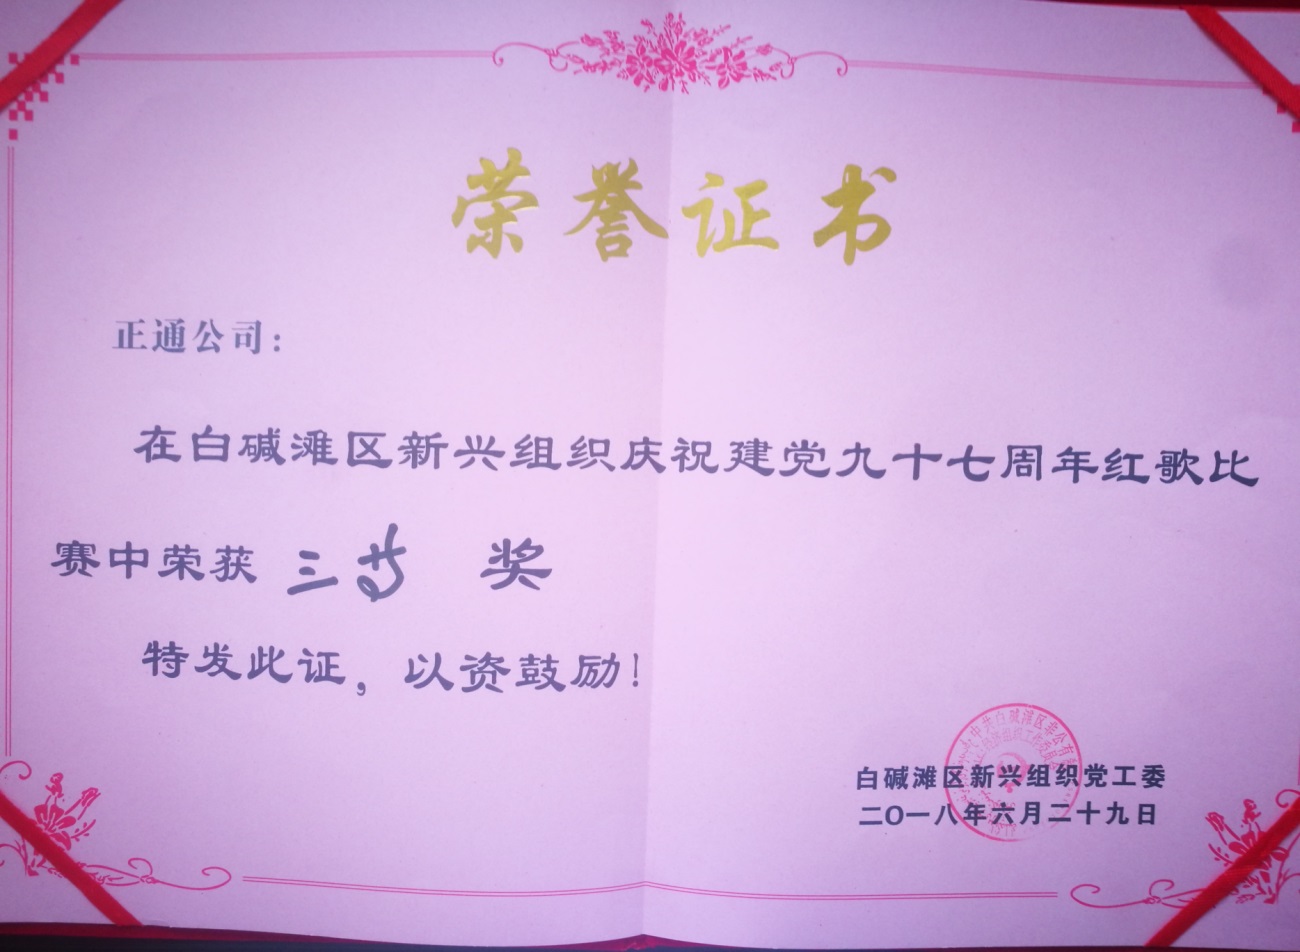 荣誉证书
正通公司：
在白碱滩区新兴组织庆祝建党九十七周年红歌比
赛中荣获 三等 奖
特发此证，以资鼓励！
中共白碱滩区非公有
白碱滩区新兴组织党工委
二〇一八年六月二十九日